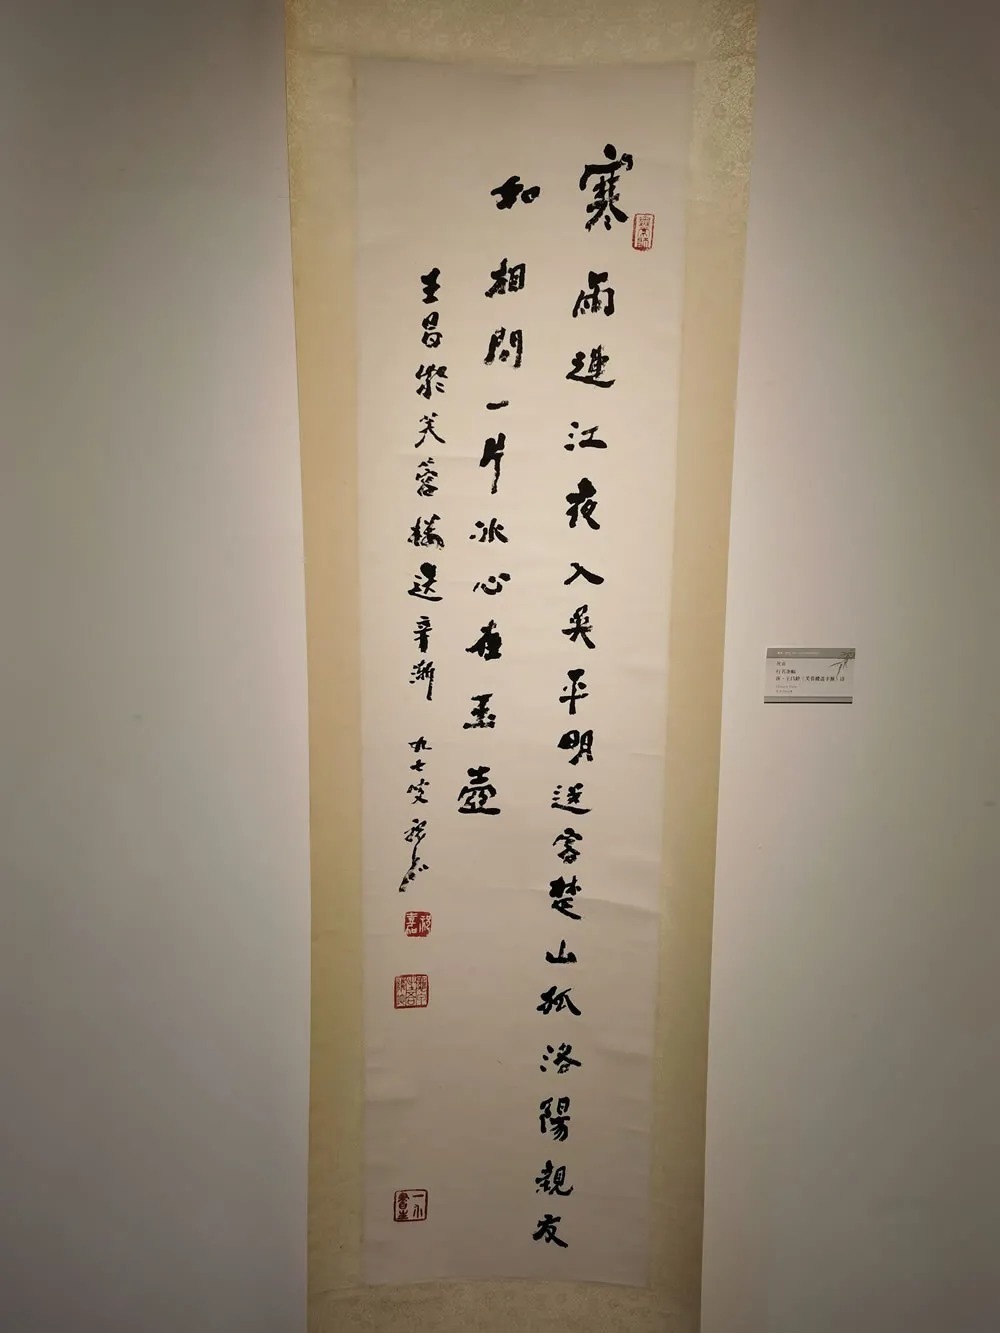 寒雨連江夜入吳平明送客楚山孤洛陽親友
如相問一片冰心在玉壺
王昌齡芙蓉樓送辛漸 九七叟
一介書生
行书条幅
唐·王昌龄《芙蓉楼送辛渐》诗